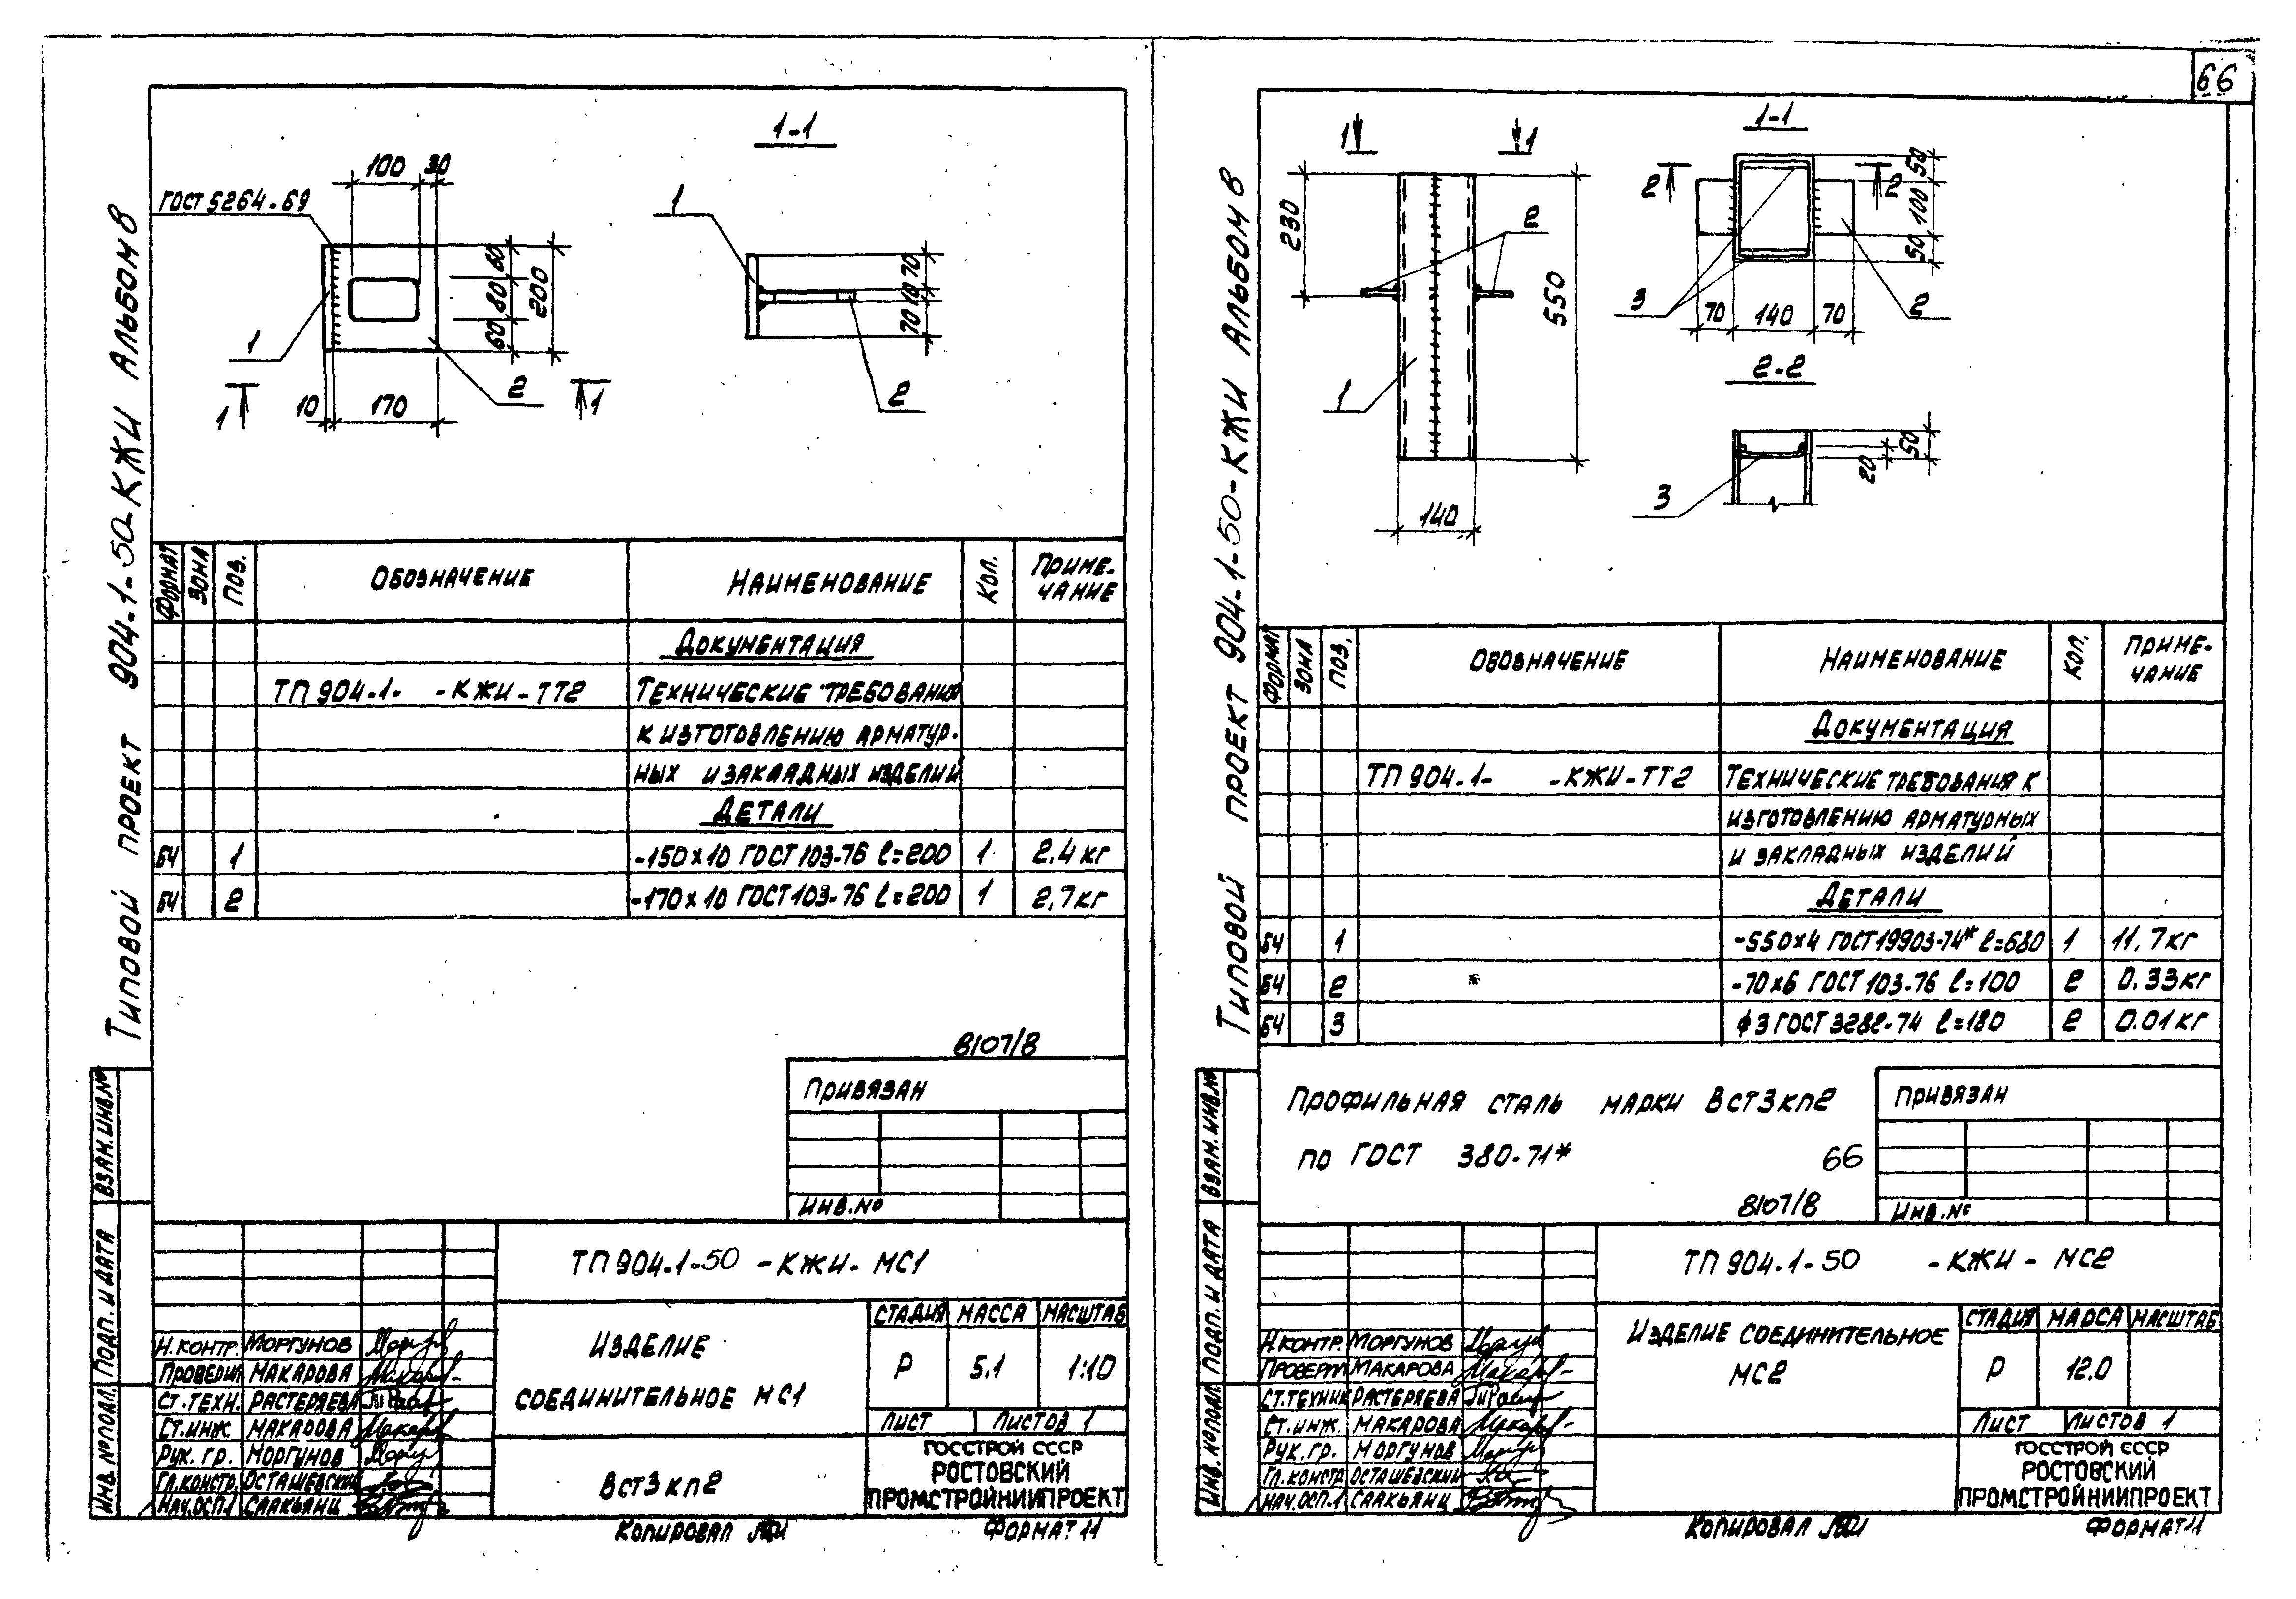 66
Типовой проект 904-1-50-КЖИ Альбом 8
1-1
ГОСТ 5264-69
100
30
60
80
60
200
1
2
10
170
1
1
1
2
70
10
70
Формат
Зона
Поз.
Обозначение
Наименование
Кол.
Приме-
чание
Документация
ТП 904-1- -КЖИ-ТТ2 Технические требования
к изготовлению арматур-
ных и закладных изделий
Детали
БЧ 1 -150х10 ГОСТ 103-76 ℓ=200 1 2.4 кг
БЧ 2 -170х10 ГОСТ 103-76 ℓ=200 1 2.7 кг
8107/8
Привязан
Инв.№
Взам.инв.№
Подп. и дата
Инв.№подл.
ТП 904-1-50 -КЖИ- МС1
Изделие
соединительное МС1
Вст3кп2
Стадия Масса Масштаб
Р 5.1 1:10
Лист Листов 1
Госстрой СССР
Ростовский
Промстройниипроект
Н.контр. Моргунов
Проверил Макарова
Ст.техн. Растеряева
Ст.инж. Макарова
Рук. гр. Моргунов
Гл.констр. Осташевский
Нач.ОСП-1 Саакьянц
Копировал
Формат 11
Типовой проект 904-1-50-КЖИ Альбом 8
1
1
230
550
2
1
140
1-1
2
2
50
100
50
3
2
70
140
70
2-2
3
20
50
Формат
Зона
Поз.
Обозначение
Наименование
Кол.
Приме-
чание
Документация
ТП 904-1- -КЖИ-ТТ2 Технические требования к
изготовлению арматурных
и закладных изделий
Детали
БЧ 1 -550х4 ГОСТ 19903-74* ℓ=680 1 11.7кг
БЧ 2 -70х6 ГОСТ 103-76 ℓ=100 2 0.33кг
БЧ 3 ф3 ГОСТ 3282-74 ℓ=180 2 0.01кг
Профильная сталь марки Вст3кп2
по ГОСТ 380-71*
66
8107/8
Привязан
Инв.№
Взам.инв.№
Подп. и дата
Инв.№подл.
ТП 904-1-50 -КЖИ - МС2
Изделие соединительное
МС2
Стадия Марса Масштаб
Р 12.0
Лист Листов 1
Госстрой СССР
Ростовский
Промстройниипроект
Н.контр. Моргунов
Проверил Макарова
Ст.техник Растеряева
Ст.инж. Макарова
Рук. гр. Моргунов
Гл.констр Осташевский
Нач.ОСП-1 Саакьянц
Копировал
Формат 11